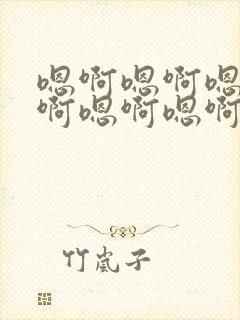 嗯啊嗯啊嗯
啊嗯啊嗯啊
竹岚子